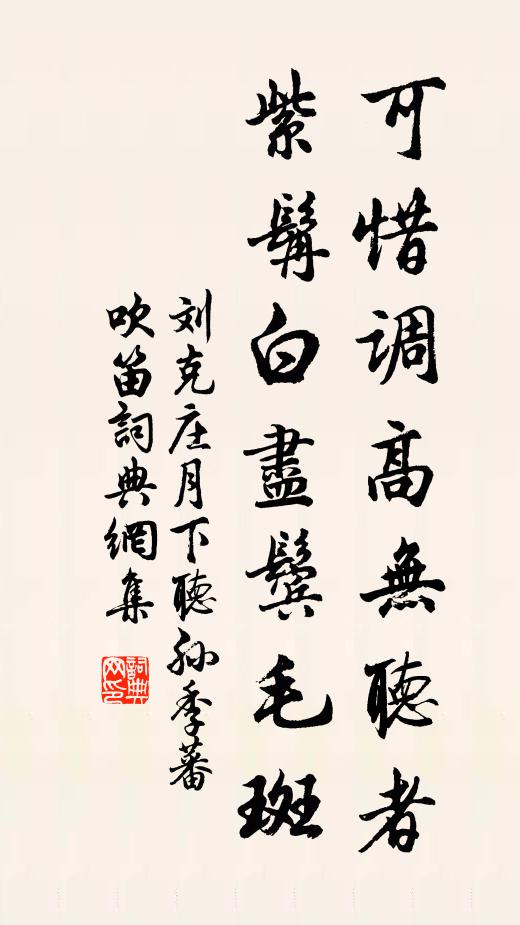 可惜調高無聽者
紫髯白盡鬢毛斑
刘克庄月下聽孙季蕃
吹笛詞典網集
詞典网印